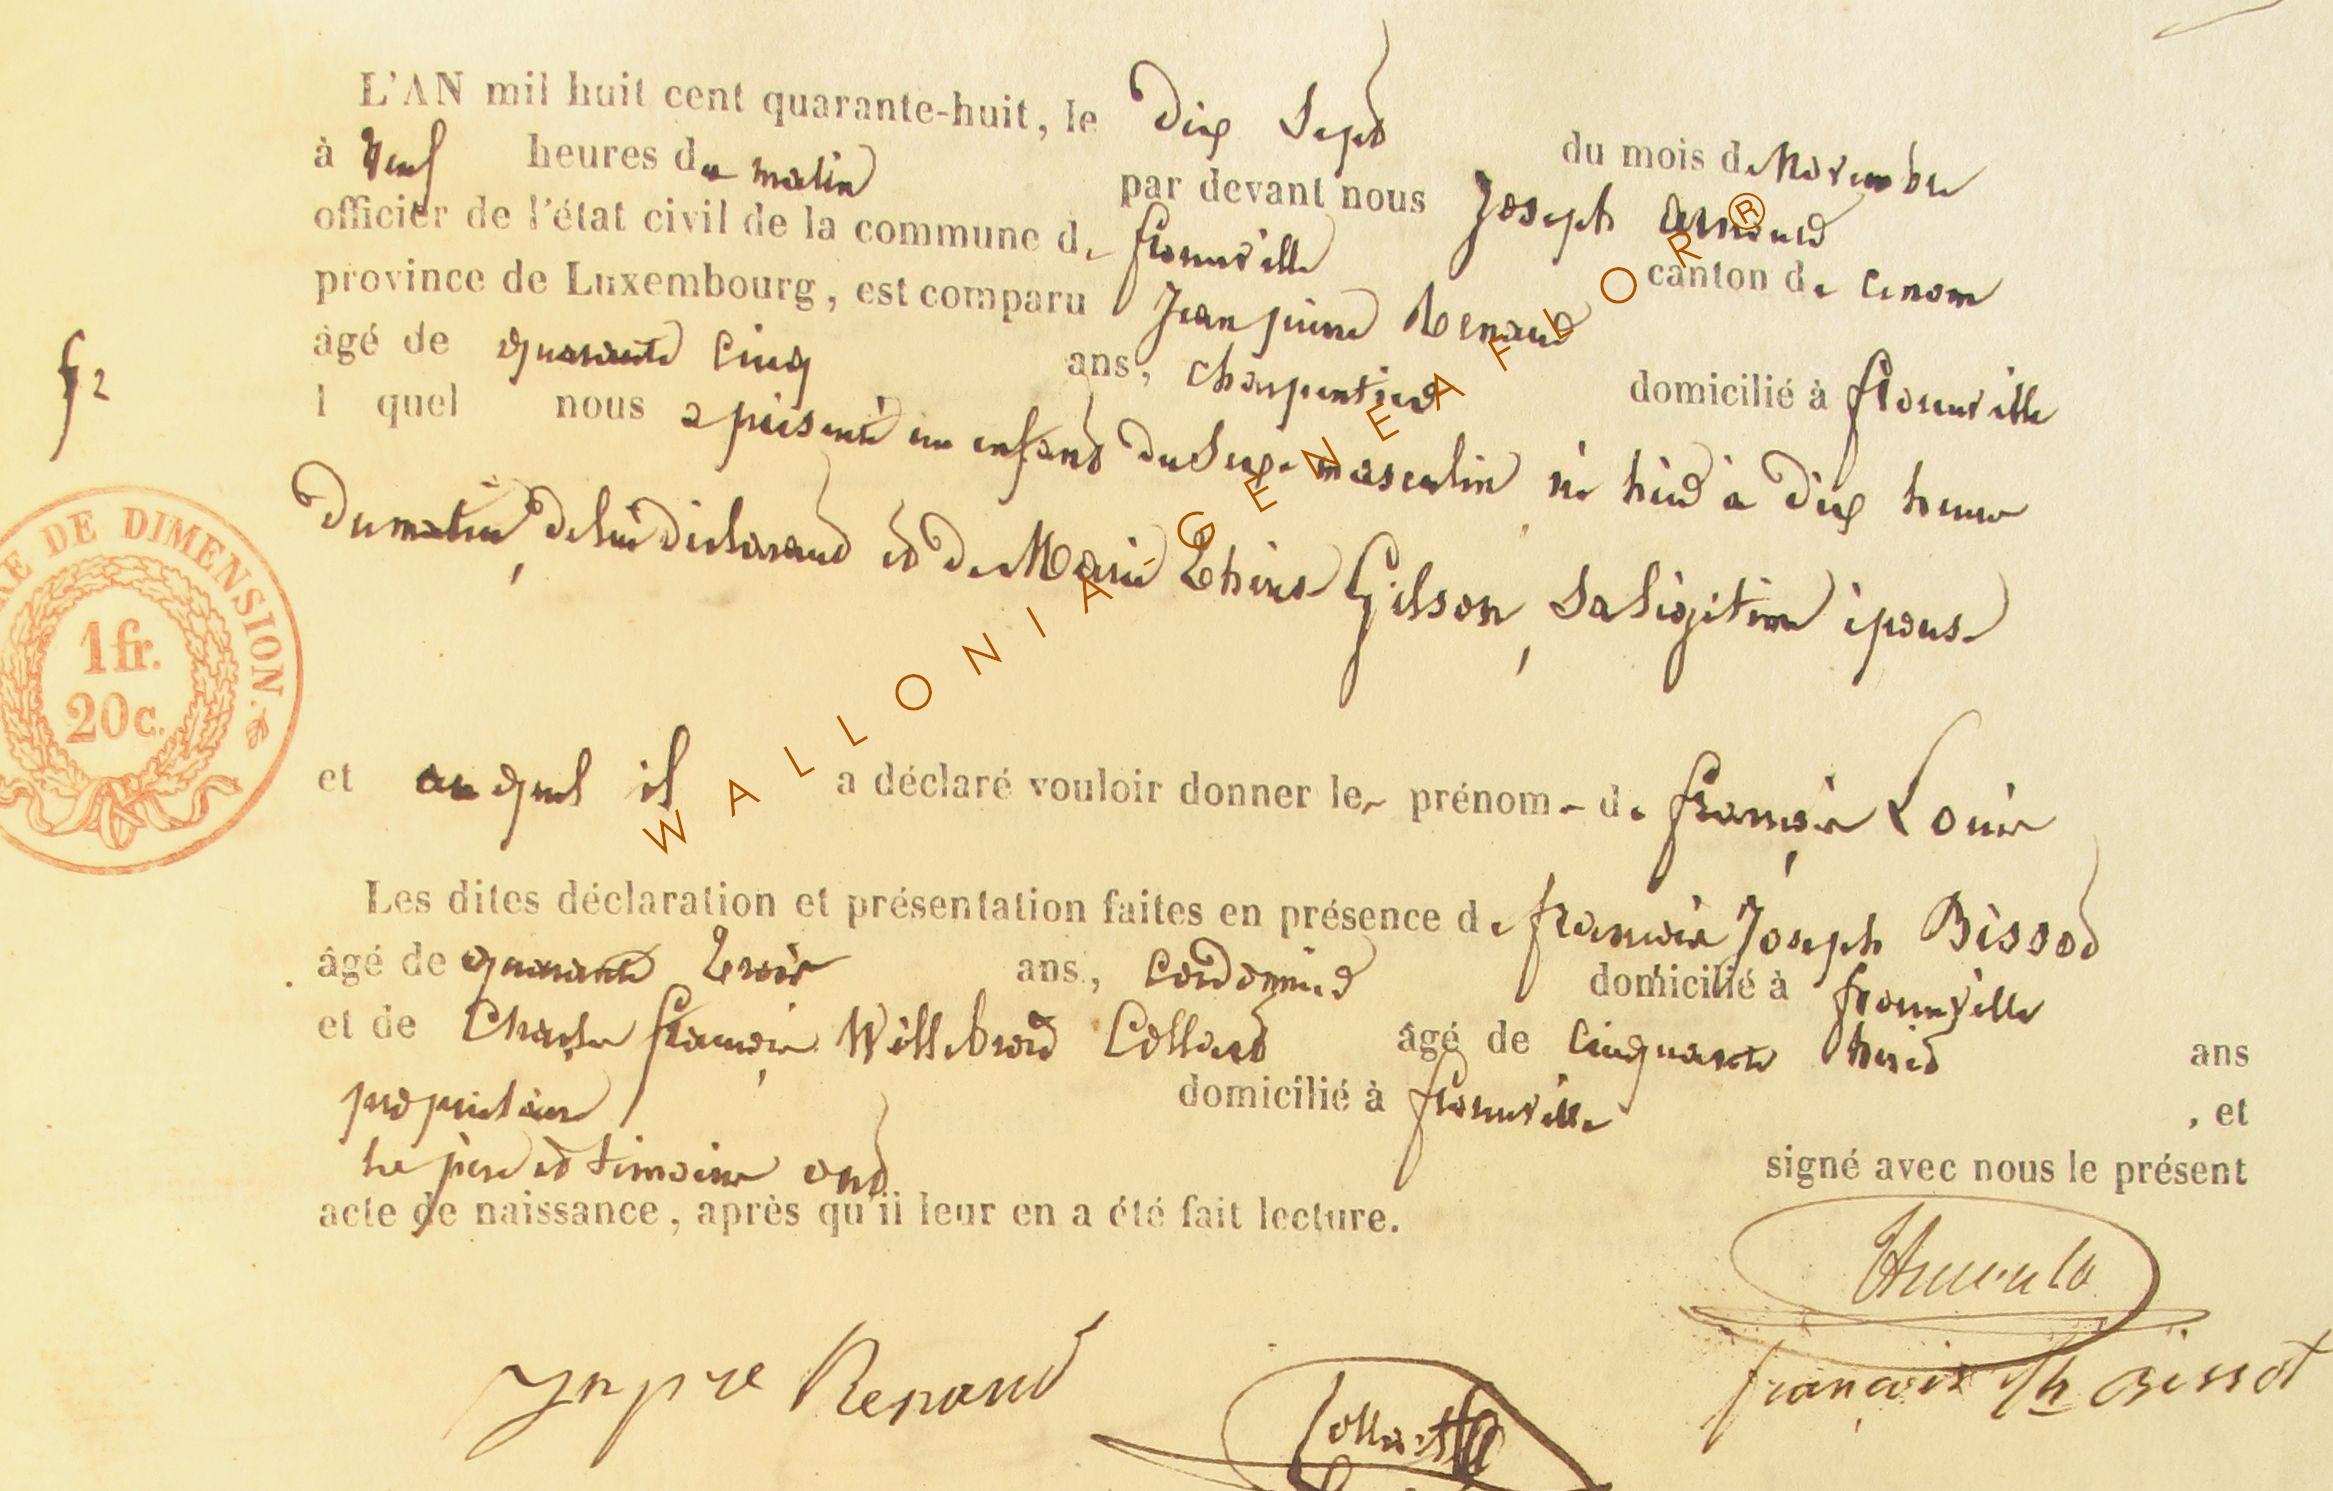 L'AN mil huit cent quarante-huit, le dix Sept du mois de Novembre
à neuf heures du matin par devant nous Joseph Arnould
officier de l'état civil de la commune de florenville canton de
province de Luxembourg, est comparu Jean pierre Renaud
âgé de quarante cinq ans, charpentier domicilié à florenville
l quel nous a présenté un enfant du Sexe masculin né hier à dix heures
du matin, de lui déclarant et de Marie Thérèse Gilson, Sa légitime épouse
f 2
TIMBRE DE DIMENSION.
1 fr.
20 c.
et auquel il a déclaré vouloir donner les prénoms de françois Louis
Les dites déclaration et présentation faites en présence de françois Joseph Bissot
âgé de quarante trois ans, cordonnier domicilié à florenville
et de Charles françois Willebrord Collard âgé de cinquante huit ans
propriétaire domicilié à florenville, et
les père et témoins ont signé avec nous le présent
acte de naissance, après qu'il leur en a été fait lecture.
Jn pre Renaud
françois Jh Bissot
WALLONIA-GENEAFLOR®